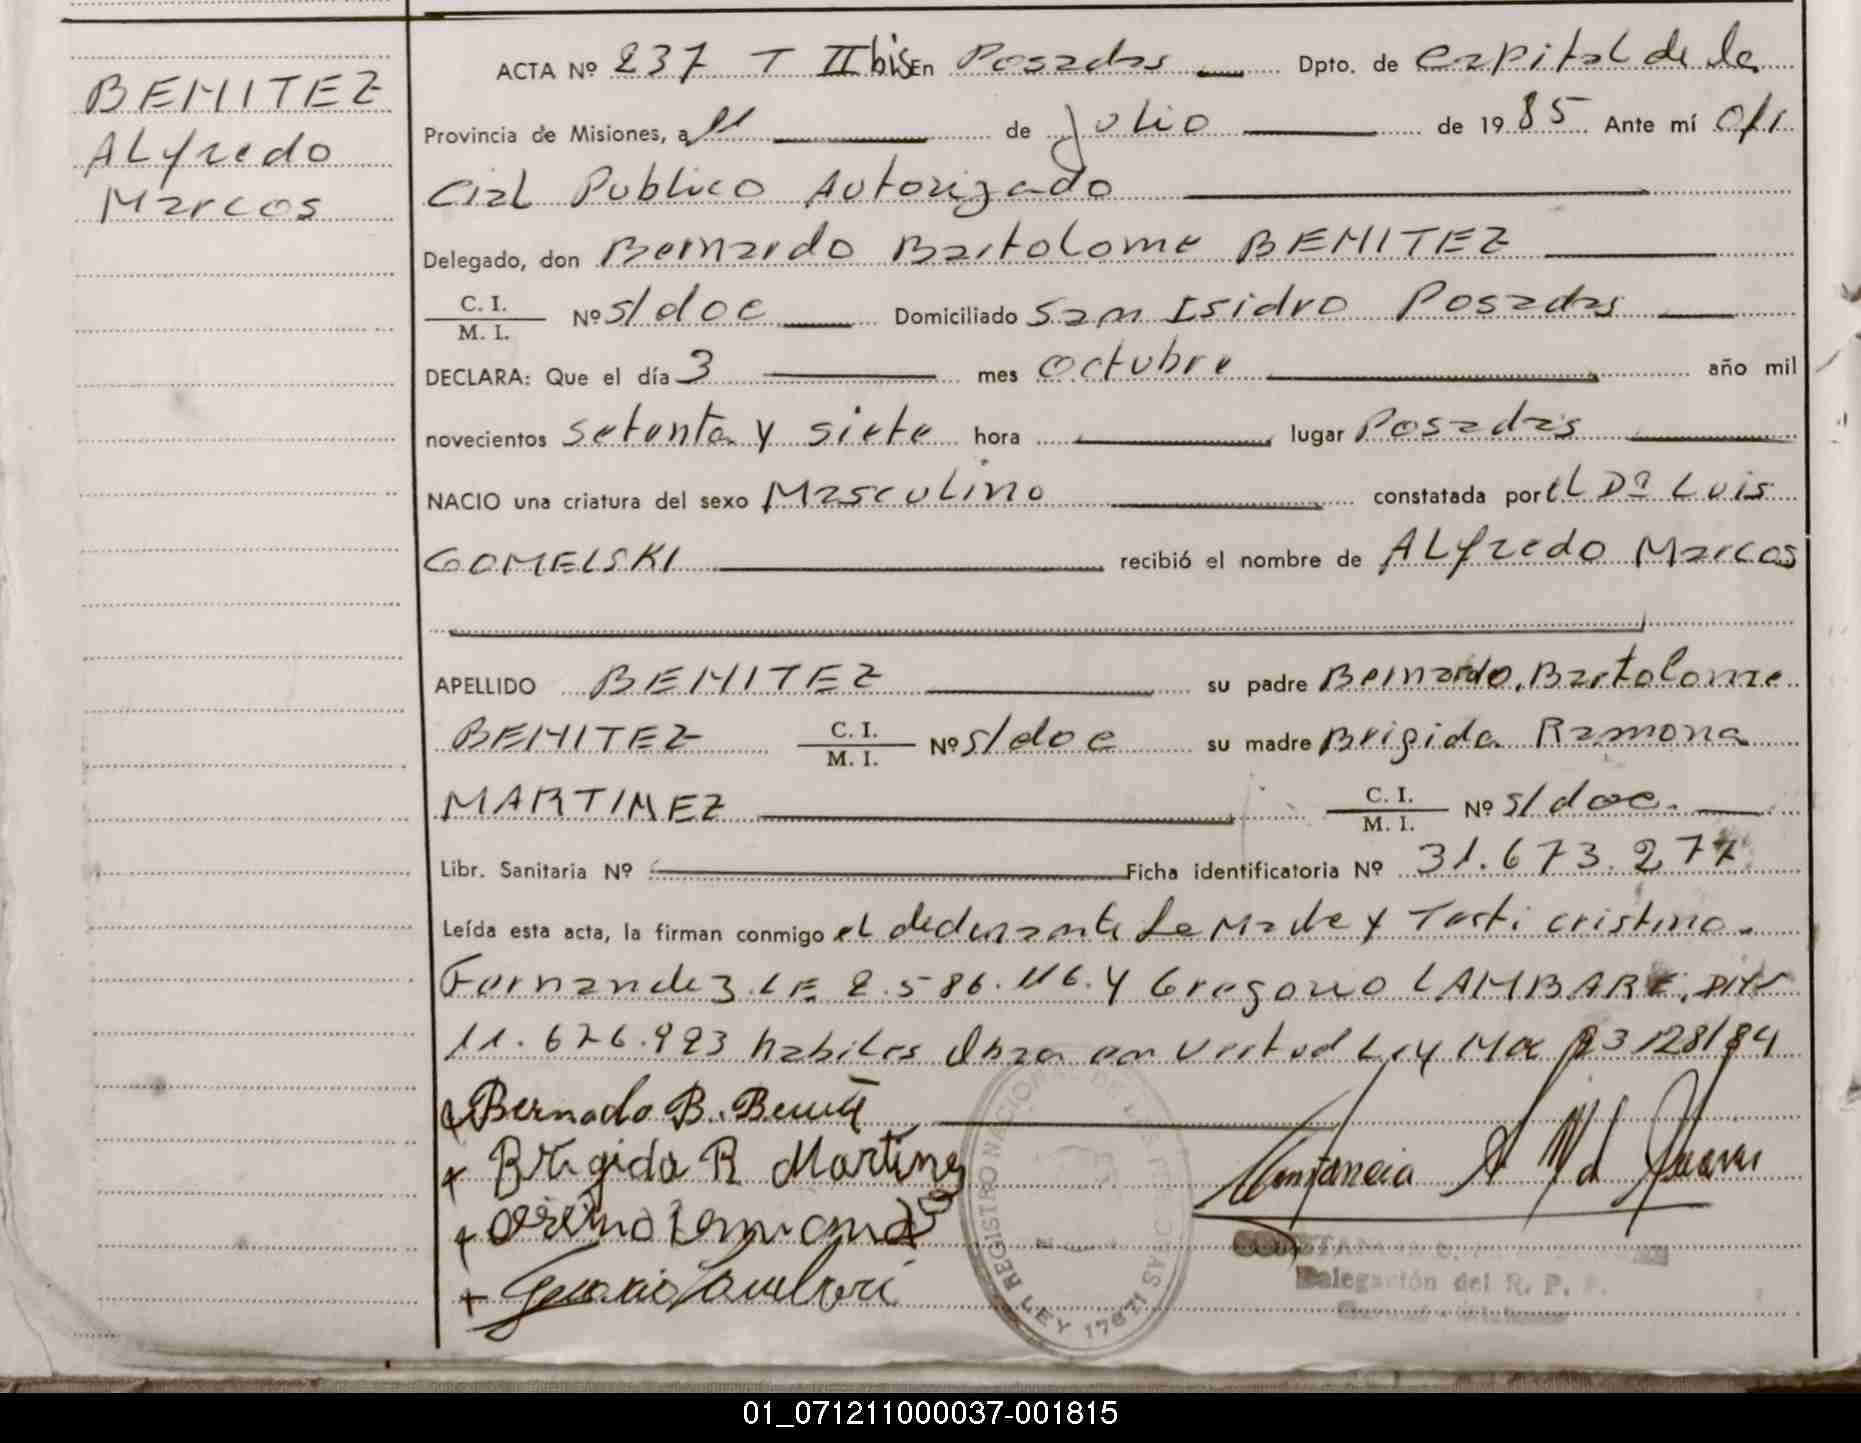 BENITEZ
Alfredo
Marcos
ACTA Nº 237 T II bis En Posadas Dpto. de Capital de la
Provincia de Misiones, a 11 de Julio de 1985 Ante mí Ofi
cial Publico Autorizado
Delegado, don Bernardo Bartolome BENITEZ
C. I.
M. I. Nº s/doc Domiciliado San Isidro Posadas
DECLARA: Que el día 3 mes octubre año mil
novecientos setenta y siete hora lugar Posadas
NACIO una criatura del sexo Masculino constatada por el Dº Luis
GOMELSKI recibió el nombre de Alfredo Marcos
APELLIDO BENITEZ su padre Bernardo Bartolome
BENITEZ C. I. M. I. Nº s/doc su madre Brigida Ramona
MARTINEZ C. I. M. I. Nº s/doc.
Libr. Sanitaria Nº Ficha identificatoria Nº 31.673.277
Leída esta acta, la firman conmigo el declarante La Madre y Testi Cristino
Fernandez LE 2.586.116 y Gregorio LAMBARE, DNI
11.676.993 habiles en virtud Ley 23128/84
Bernado B. Benite
Brigida R Martinez
REGISTRO NACIONAL DE LAS PERSONAS
LEY 17671
Delegación del R. P.
01_071211000037-001815